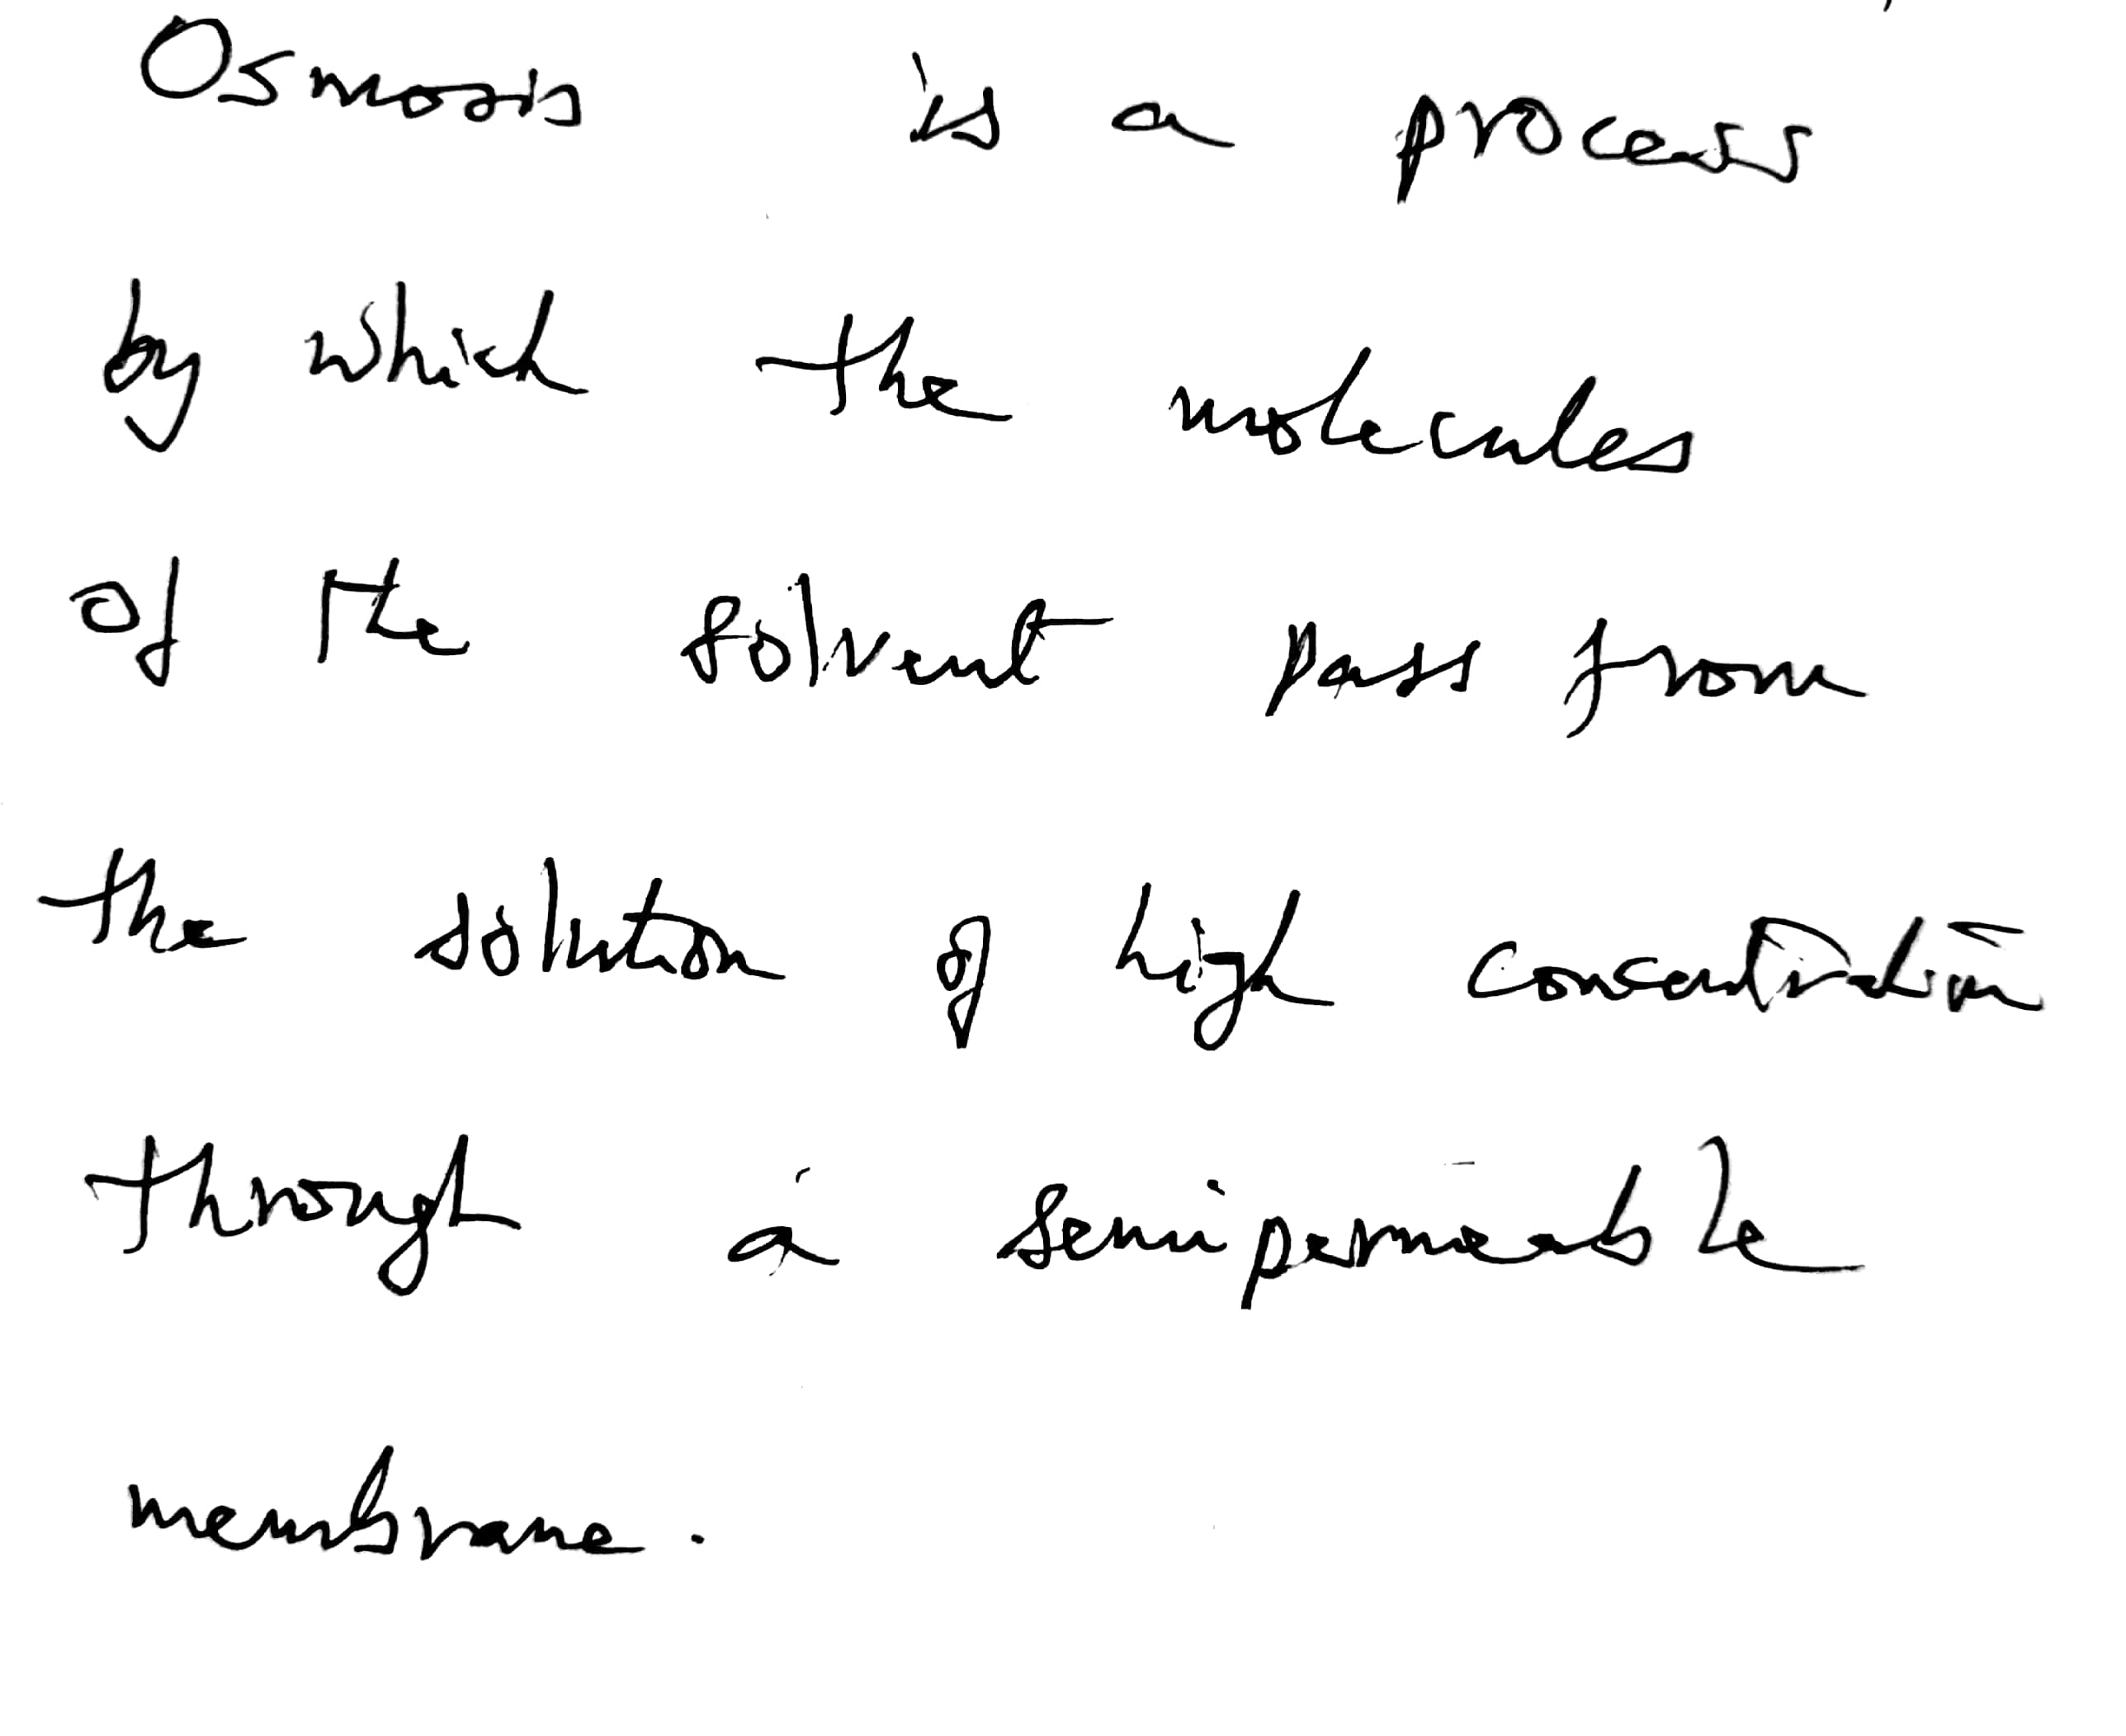 Osmosis is a process
by which the molecules
of the solvent pass from
the solution of high concentration
through a semipermeable
membrane.